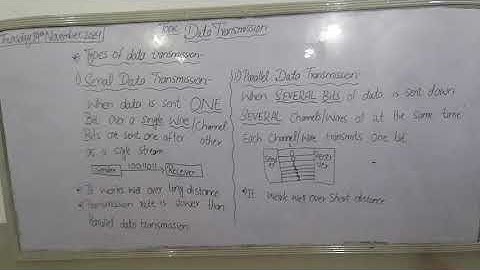 Thursday November 2021
Topic Data Transmission
* Types of data transmission-
i) Serial Data Transmission-
When data is sent ONE
Bit over a single wire/channel
Bits are sent one after other
as a single stream.
Sender 10011011 Receiver
* It works well over long distance
* Transmission rate is slower than
Parallel data transmission
ii) Parallel Data Transmission-
When SEVERAL Bits of data is sent down
SEVERAL Channels/Wires of at the same time
Each Channel/Wire transmits one bit.
* It work well over short distance